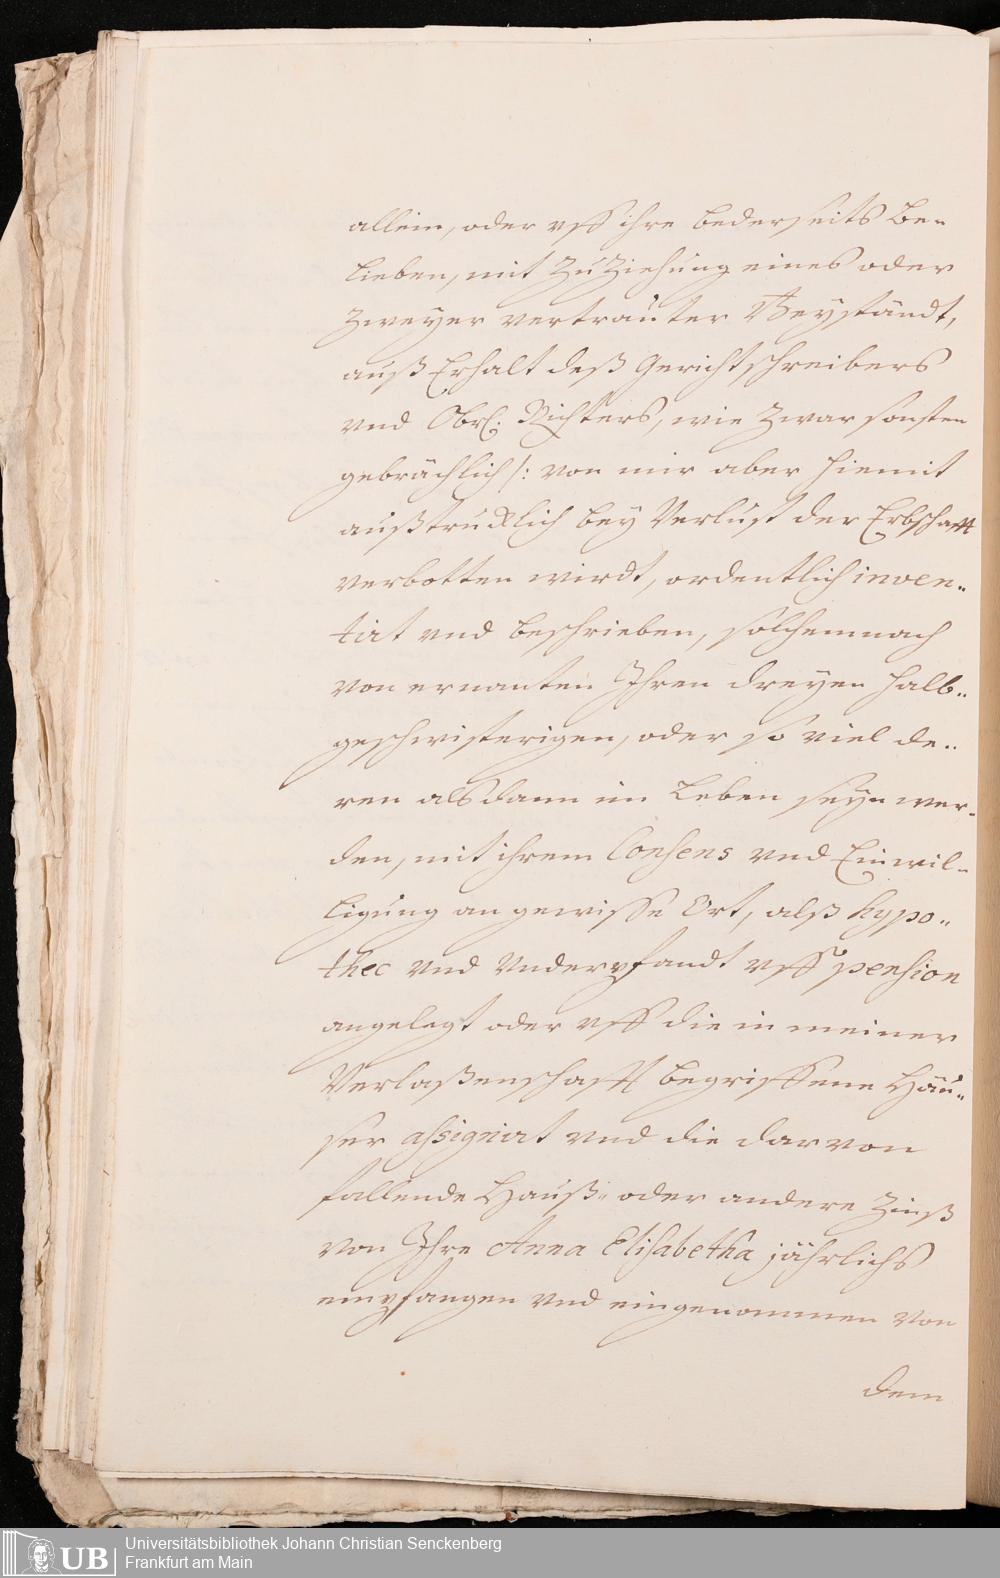 allein, oder vff ihre bederseits Be-
lieben, mit Zuziehung eines oder
Zweyer vertrauter Beyständt,
auß Erhalt deß Gerichtschreibers
vnd Obrl: Richters, wie zwar sonsten
gebrächlich /: von mir aber hiemit
außtrucklich bey Verlust der Erbschafft
verbotten wirdt, ordentlich inven-
tirt vnd beschrieben, solchemnach
von ernanten Ihren dreyen halb-
geschwisterigen, oder so viel de-
ren alsdann im Leben seyn wer-
den, mit ihrem Consens vnd Einwil-
ligung an gewisse Ort, alß hypo-
thec vnd Vnderpfandt vff pension
angelegt oder vff die in meiner
Verlaßenschafft begriffene Häu-
ser assignirt vnd die darvon
fallende Hauß- oder andere Zinß
von Ihre Anna Elisabetha jährlichs
empfangen vnd eingenommen von
dem
UB
Universitätsbibliothek Johann Christian Senckenberg
Frankfurt am Main